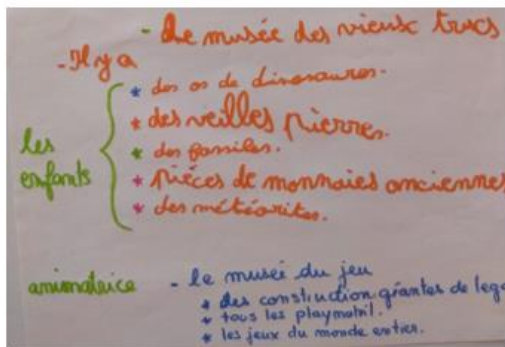 - Le musée des vieux trucs
- Il y a
* des os de dinosaures.
* des veilles pierres.
les enfants
* des fossiles.
* pièces de monnaies anciennes
* des météorites.
animatrice - le musée du jeu
* des construction géantes de lego
* tous les playmobil.
* les jeux du monde entier.